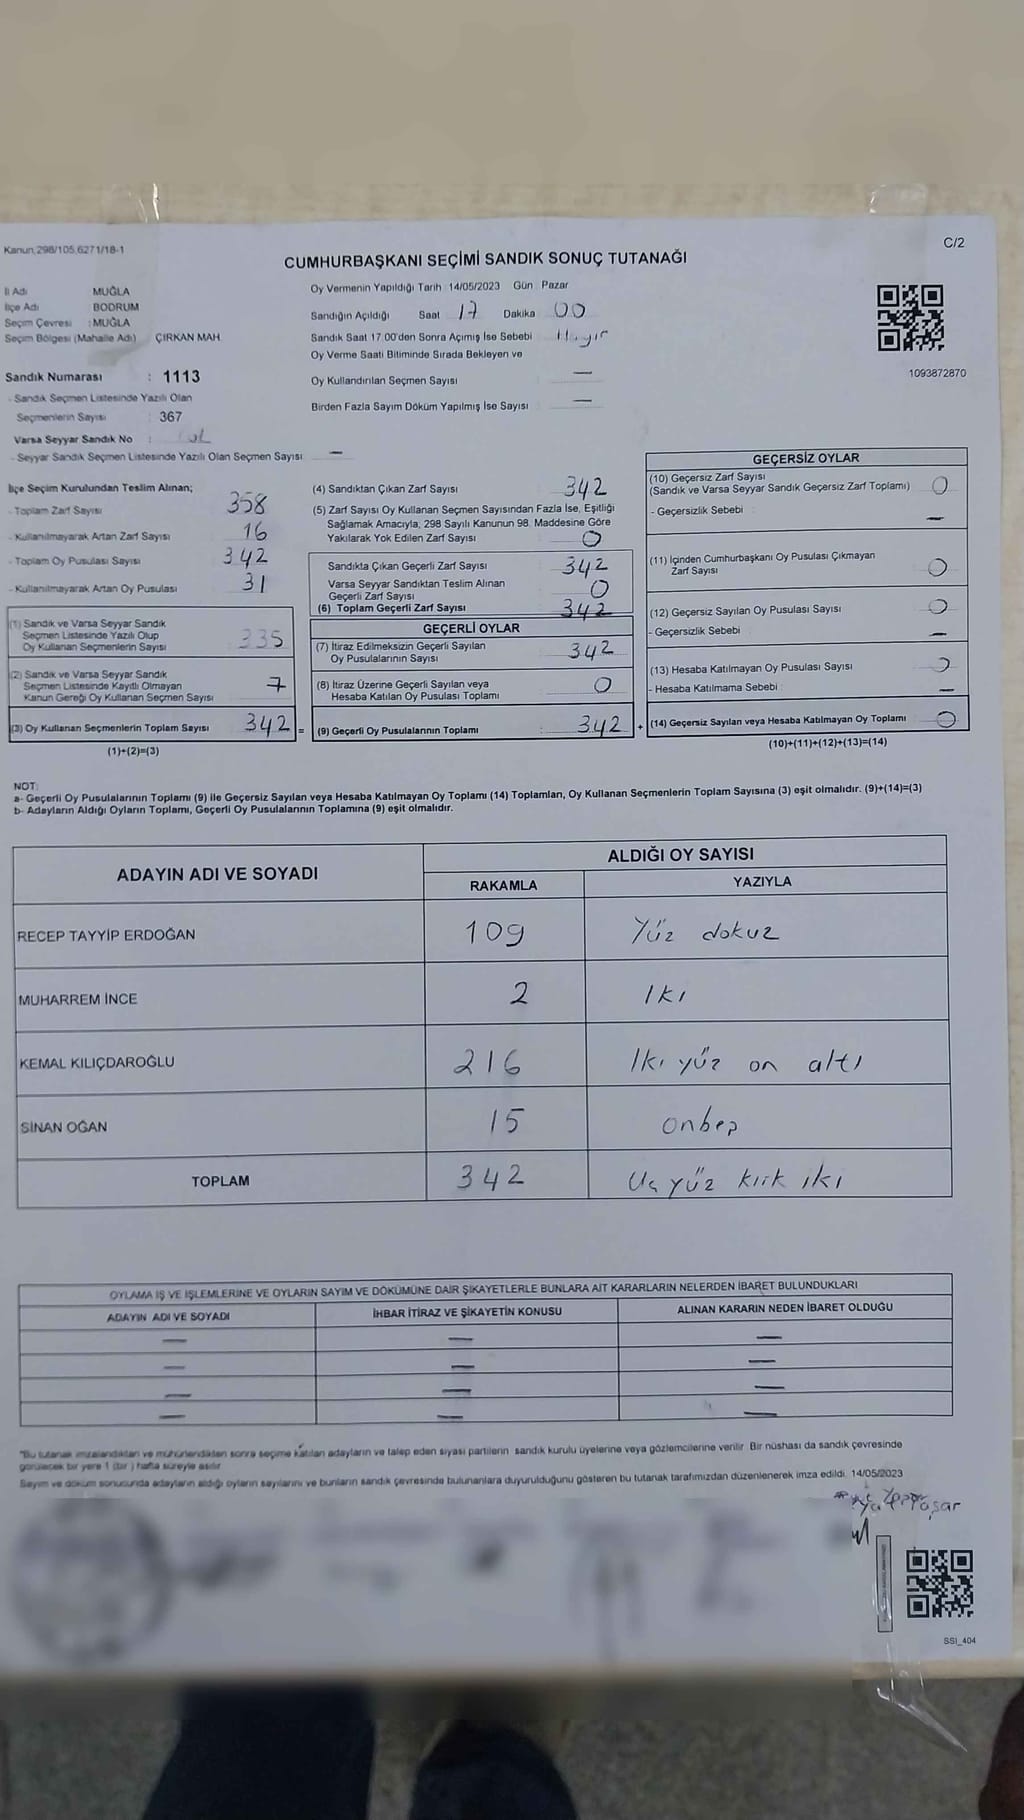 Kanun 298/105,6271/18-1
C/2
CUMHURBAŞKANI SEÇİMİ SANDIK SONUÇ TUTANAĞI
İl Adı MUĞLA
İlçe Adı BODRUM
Seçim Çevresi : MUĞLA
Seçim Bölgesi (Mahalle Adı) ÇIRKAN MAH
Sandık Numarası : 1113
- Sandık Seçmen Listesinde Yazılı Olan
Seçmenlerin Sayısı : 367
Varsa Seyyar Sandık No :
- Seyyar Sandık Seçmen Listesinde Yazılı Olan Seçmen Sayısı : —
Oy Vermenin Yapıldığı Tarih : 14/05/2023 Gün : Pazar
Sandığın Açıldığı Saat 17 Dakika 00
Sandık Saat 17:00'den Sonra Açımış İse Sebebi : Hayır
Oy Verme Saati Bitiminde Sırada Bekleyen ve
Oy Kullandırılan Seçmen Sayısı : —
Birden Fazla Sayım Döküm Yapılmış İse Sayısı : —
1093872870
İlçe Seçim Kurulundan Teslim Alınan;
- Toplam Zarf Sayısı 358
- Kullanılmayarak Artan Zarf Sayısı 16
- Toplam Oy Pusulası Sayısı 342
- Kullanılmayarak Artan Oy Pusulası 31
(1) Sandık ve Varsa Seyyar Sandık
Seçmen Listesinde Yazılı Olup
Oy Kullanan Seçmenlerin Sayısı 335
(2) Sandık ve Varsa Seyyar Sandık
Seçmen Listesinde Kayıtlı Olmayan
Kanun Gereği Oy Kullanan Seçmen Sayısı 7
(3) Oy Kullanan Seçmenlerin Toplam Sayısı 342 =
(1)+(2)=(3)
(4) Sandıktan Çıkan Zarf Sayısı : 342
(5) Zarf Sayısı Oy Kullanan Seçmen Sayısından Fazla İse, Eşitliği
Sağlamak Amacıyla, 298 Sayılı Kanunun 98. Maddesine Göre
Yakılarak Yok Edilen Zarf Sayısı : 0
Sandıkta Çıkan Geçerli Zarf Sayısı : 342
Varsa Seyyar Sandıktan Teslim Alınan
Geçerli Zarf Sayısı : 0
(6) Toplam Geçerli Zarf Sayısı : 342
GEÇERLİ OYLAR
(7) İtiraz Edilmeksizin Geçerli Sayılan
Oy Pusulalarının Sayısı : 342
(8) İtiraz Üzerine Geçerli Sayılan veya
Hesaba Katılan Oy Pusulası Toplamı : 0
(9) Geçerli Oy Pusulalarının Toplamı : 342 +
GEÇERSİZ OYLAR
(10) Geçersiz Zarf Sayısı
(Sandık ve Varsa Seyyar Sandık Geçersiz Zarf Toplamı) : 0
- Geçersizlik Sebebi : —
(11) İçinden Cumhurbaşkanı Oy Pusulası Çıkmayan
Zarf Sayısı : 0
(12) Geçersiz Sayılan Oy Pusulası Sayısı : 0
- Geçersizlik Sebebi : —
(13) Hesaba Katılmayan Oy Pusulası Sayısı : 0
- Hesaba Katılmama Sebebi : —
(14) Geçersiz Sayılan veya Hesaba Katılmayan Oy Toplamı : 0
(10)+(11)+(12)+(13)=(14)
NOT:
a- Geçerli Oy Pusulalarının Toplamı (9) ile Geçersiz Sayılan veya Hesaba Katılmayan Oy Toplamı (14) Toplamları, Oy Kullanan Seçmenlerin Toplam Sayısına (3) eşit olmalıdır. (9)+(14)=(3)
b- Adayların Aldığı Oyların Toplamı, Geçerli Oy Pusulalarının Toplamına (9) eşit olmalıdır.
ADAYIN ADI VE SOYADI
ALDIĞI OY SAYISI
RAKAMLA YAZIYLA
RECEP TAYYİP ERDOĞAN 109 Yüz dokuz
MUHARREM İNCE 2 Iki
KEMAL KILIÇDAROĞLU 216 Iki yüz on altı
SİNAN OĞAN 15 Onbeş
TOPLAM 342 Üç yüz kırk iki
OYLAMA İŞ VE İŞLEMLERİNE VE OYLARIN SAYIM VE DÖKÜMÜNE DAİR ŞİKAYETLERLE BUNLARA AİT KARARLARIN NELERDEN İBARET BULUNDUKLARI
ADAYIN ADI VE SOYADI İHBAR İTİRAZ VE ŞİKAYETİN KONUSU ALINAN KARARIN NEDEN İBARET OLDUĞU
— — —
— — —
— — —
— — —
*Bu tutanak imzalandıktan ve mühürlendikten sonra seçime katılan adayların ve talep eden siyasi partilerin sandık kurulu üyelerine veya gözlemcilerine verilir. Bir nüshası da sandık çevresinde
görülecek bir yere 1 (bir) hafta süreyle asılır.
Sayım ve döküm sonucunda adayların aldığı oyların sayılarını ve bunların sandık çevresinde bulunanlara duyurulduğunu gösteren bu tutanak tarafımızdan düzenlenerek imza edildi. 14/05/2023
SSI_404